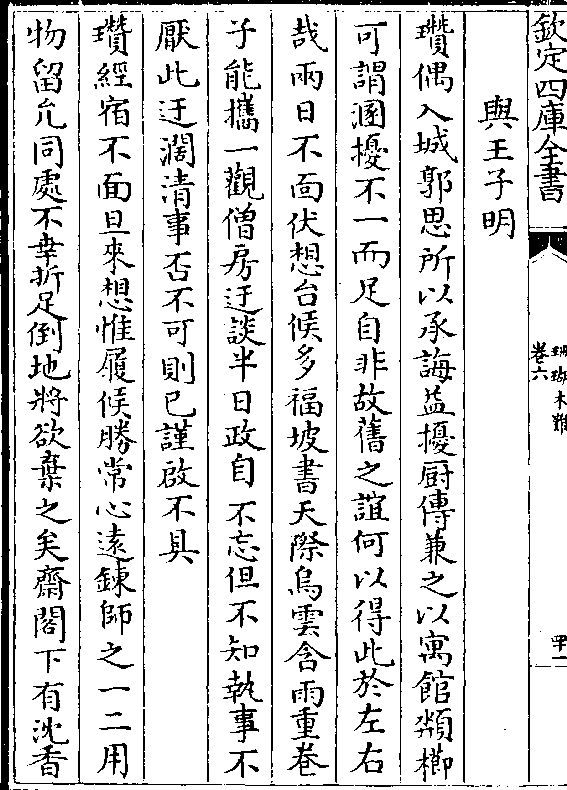 欽定四庫全書
珊瑚木難
卷六
四十一
與王子明
瓚偶入城郭思所以承誨益擾厨傳兼之以寓館類櫛
可謂溷擾不一而足自非故舊之誼何以得此於左右
哉兩日不面伏想台候多福坡書天際烏雲含雨重卷
子能攜一觀僧房迂談半日政自不忘但不知執事不
厭此迂濶清事否不可則已謹啟不具
瓚經宿不面旦來想惟履候勝常心遠鍊師之一二用
物留允同處不幸折足倒地將欲棄之矣齋閣下有沈香